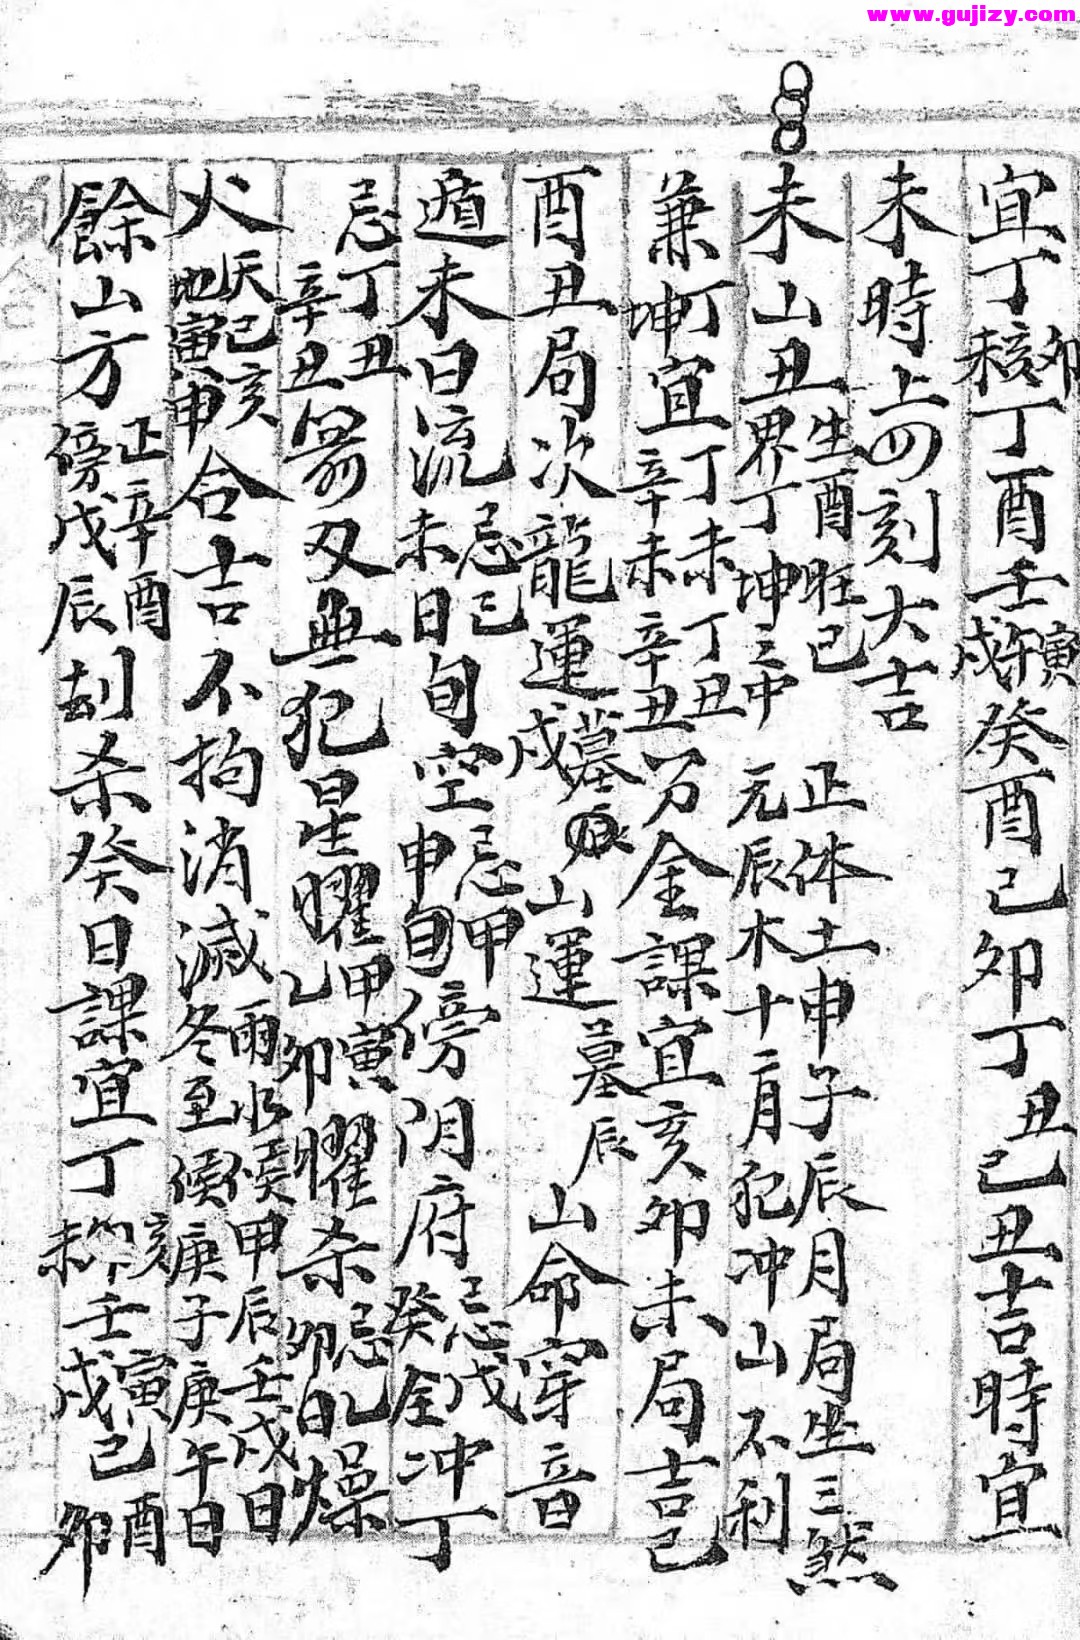 www.gujizy.com
宜丁卯亥未丁酉壬寅午戌癸酉己卯丁丑己丑吉時宜
未時上四刻大吉
未山丑界生酉旺巳丁坤三中正体土申子辰月局坐三煞元辰木十二月犯冲山不利
兼丁坤宜丁未辛未丁丑辛丑分金課宜亥卯未局吉巳
酉丑局次龍運墓戌山運墓辰山命穿音
遁未日流忌己未日旬空忌甲申旬傍阴府忌戊癸全冲丁
忌丁丑辛丑箭刃無犯星曜甲寅乙卯曜杀忌乙卯日燥
火天己亥地寅申合吉不拘消滅雨水候甲辰壬戌日冬至候庚子庚午日
餘山方正辛酉傍戊辰刦杀癸日課宜丁亥卯未壬寅午戌己酉卯